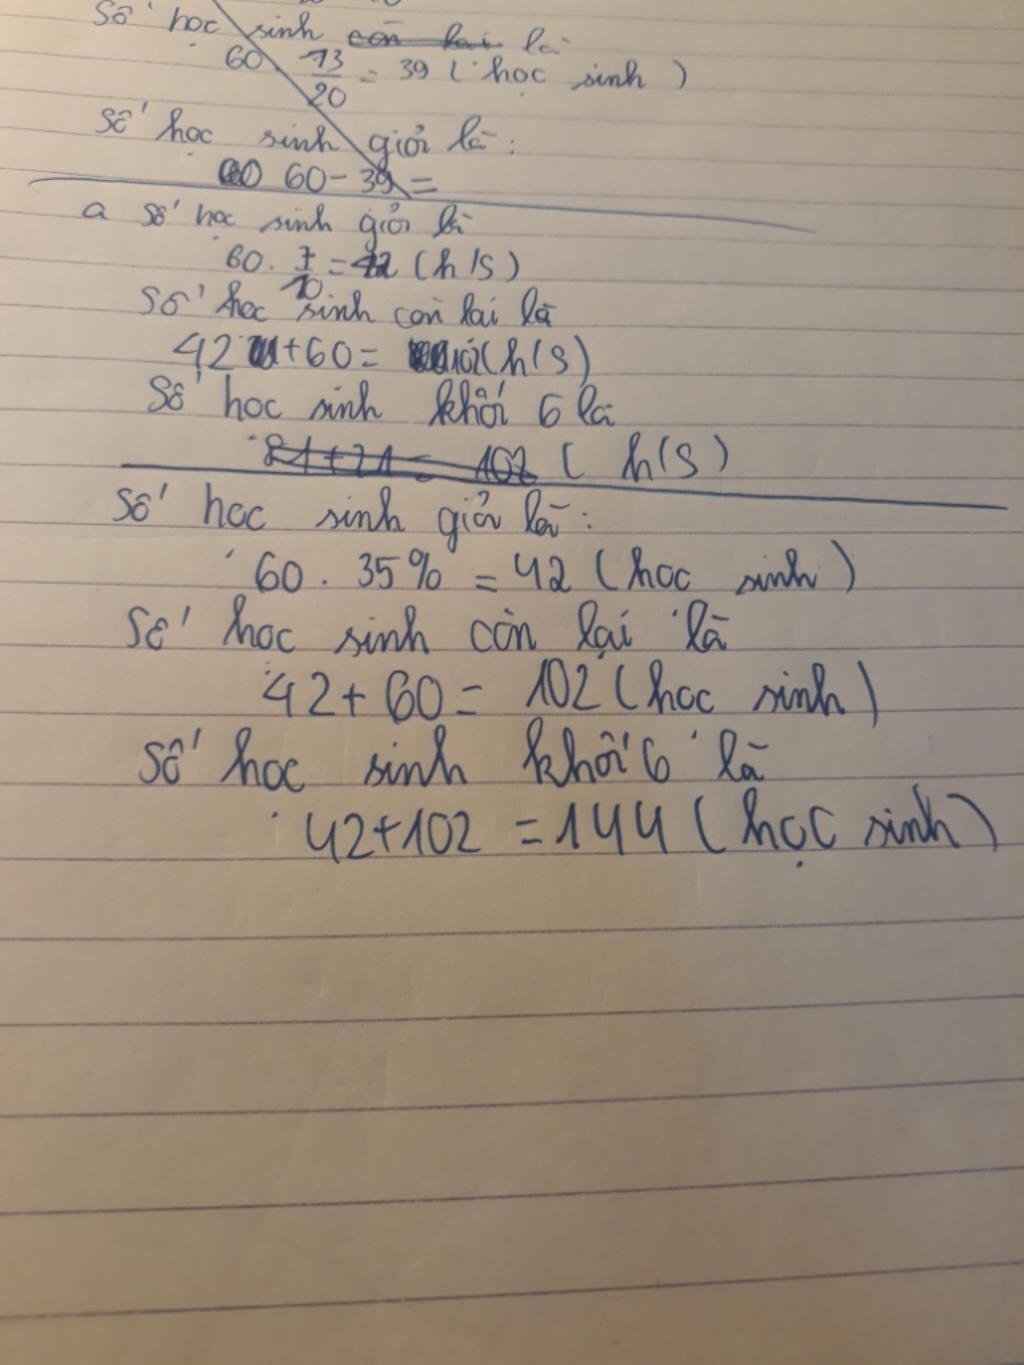 Số học sinh còn lại là
60. 13/20 = 39 ( học sinh )
Số học sinh giỏi là :
60 - 39 =
a số học sinh giỏi là
60. 7/10 = 42 (h/s)
Số học sinh còn lại là
42 + 60 = 102 (h/s)
Số học sinh khối 6 là
21+21 = 102 ( h/s)
Số học sinh giỏi là :
60 . 35% = 42 (học sinh )
Số học sinh còn lại là
42 + 60 = 102 (học sinh )
Số học sinh khối 6 là
42+102 = 144 (học sinh )